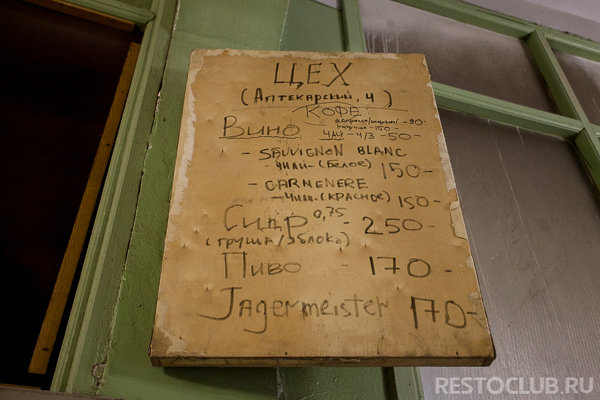 ЦЕХ
(Аптекарский, 4)
КОФЕ
эспрессо/американо/ -90-
капучино -150-
Вино
ЧАЙ -ч/з -50-
- SAUVIGNON BLANC
- Чили-(БЕЛОЕ) 150-
- CARNENERE
- Чили-(КРАСНОЕ) 150-
Сидр 0,75 - 250-
(груша/яблоко)
Пиво - 170-
Jagermeister 170-
RESTOCLUB.RU